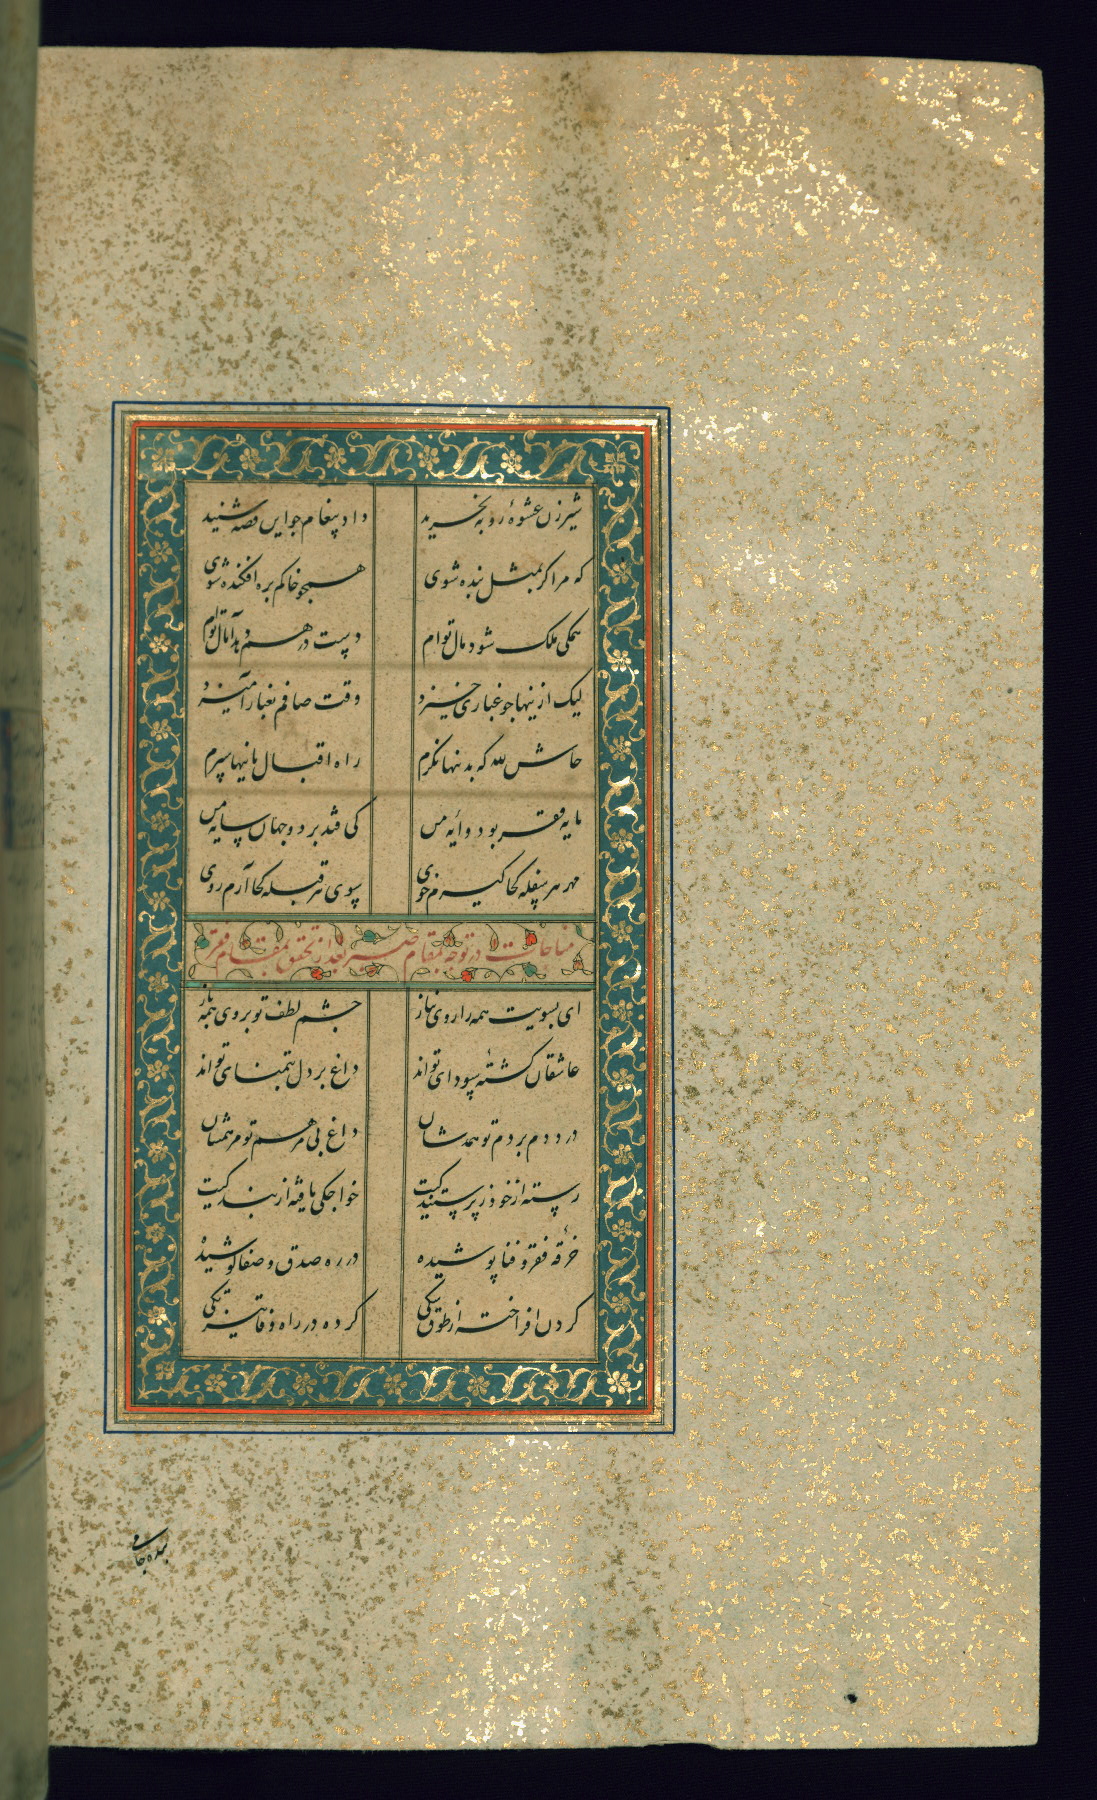 شیرزن عشوهٔ روبه نخرید داد پیغام چو این قصه شنید
که مرا گر بمثل بنده شوی همچو خاکم بره افکنده شوی
همگی ملک شود مال توام دست در هم دهد آمال توام
لیک ازینها چو غباری خیزد وقت صافم بغبار آمیزد
حاش لله که بدینها نگرم راه اقبال بدینها سپرم
مایه فقر بود وایه من کی فتد بر دو جهان سایه من
مهر هر سفله کجا گیرم خوی سوی هر قبله کجا آرم روی
مناجات در توجه بمقام صبر بعد از تحقق بمقام فقر
ای بسویت همه را روی نیاز چشم لطف تو بروی همه باز
عاشقان کشتهٔ سودای تواند داغ بر دل بتمنای تواند
درد دم بردم تو همدمشان داغ بی مرهم تو مرهمشان
رسته از خود ز پرستندگیت خواجگی یافته از بندگیت
خرقهٔ فقر و فنا پوشیده در ره صدق و صفا کوشیده
گردن افراخته از طوق سگی کرده در راه وفا تیز تگی